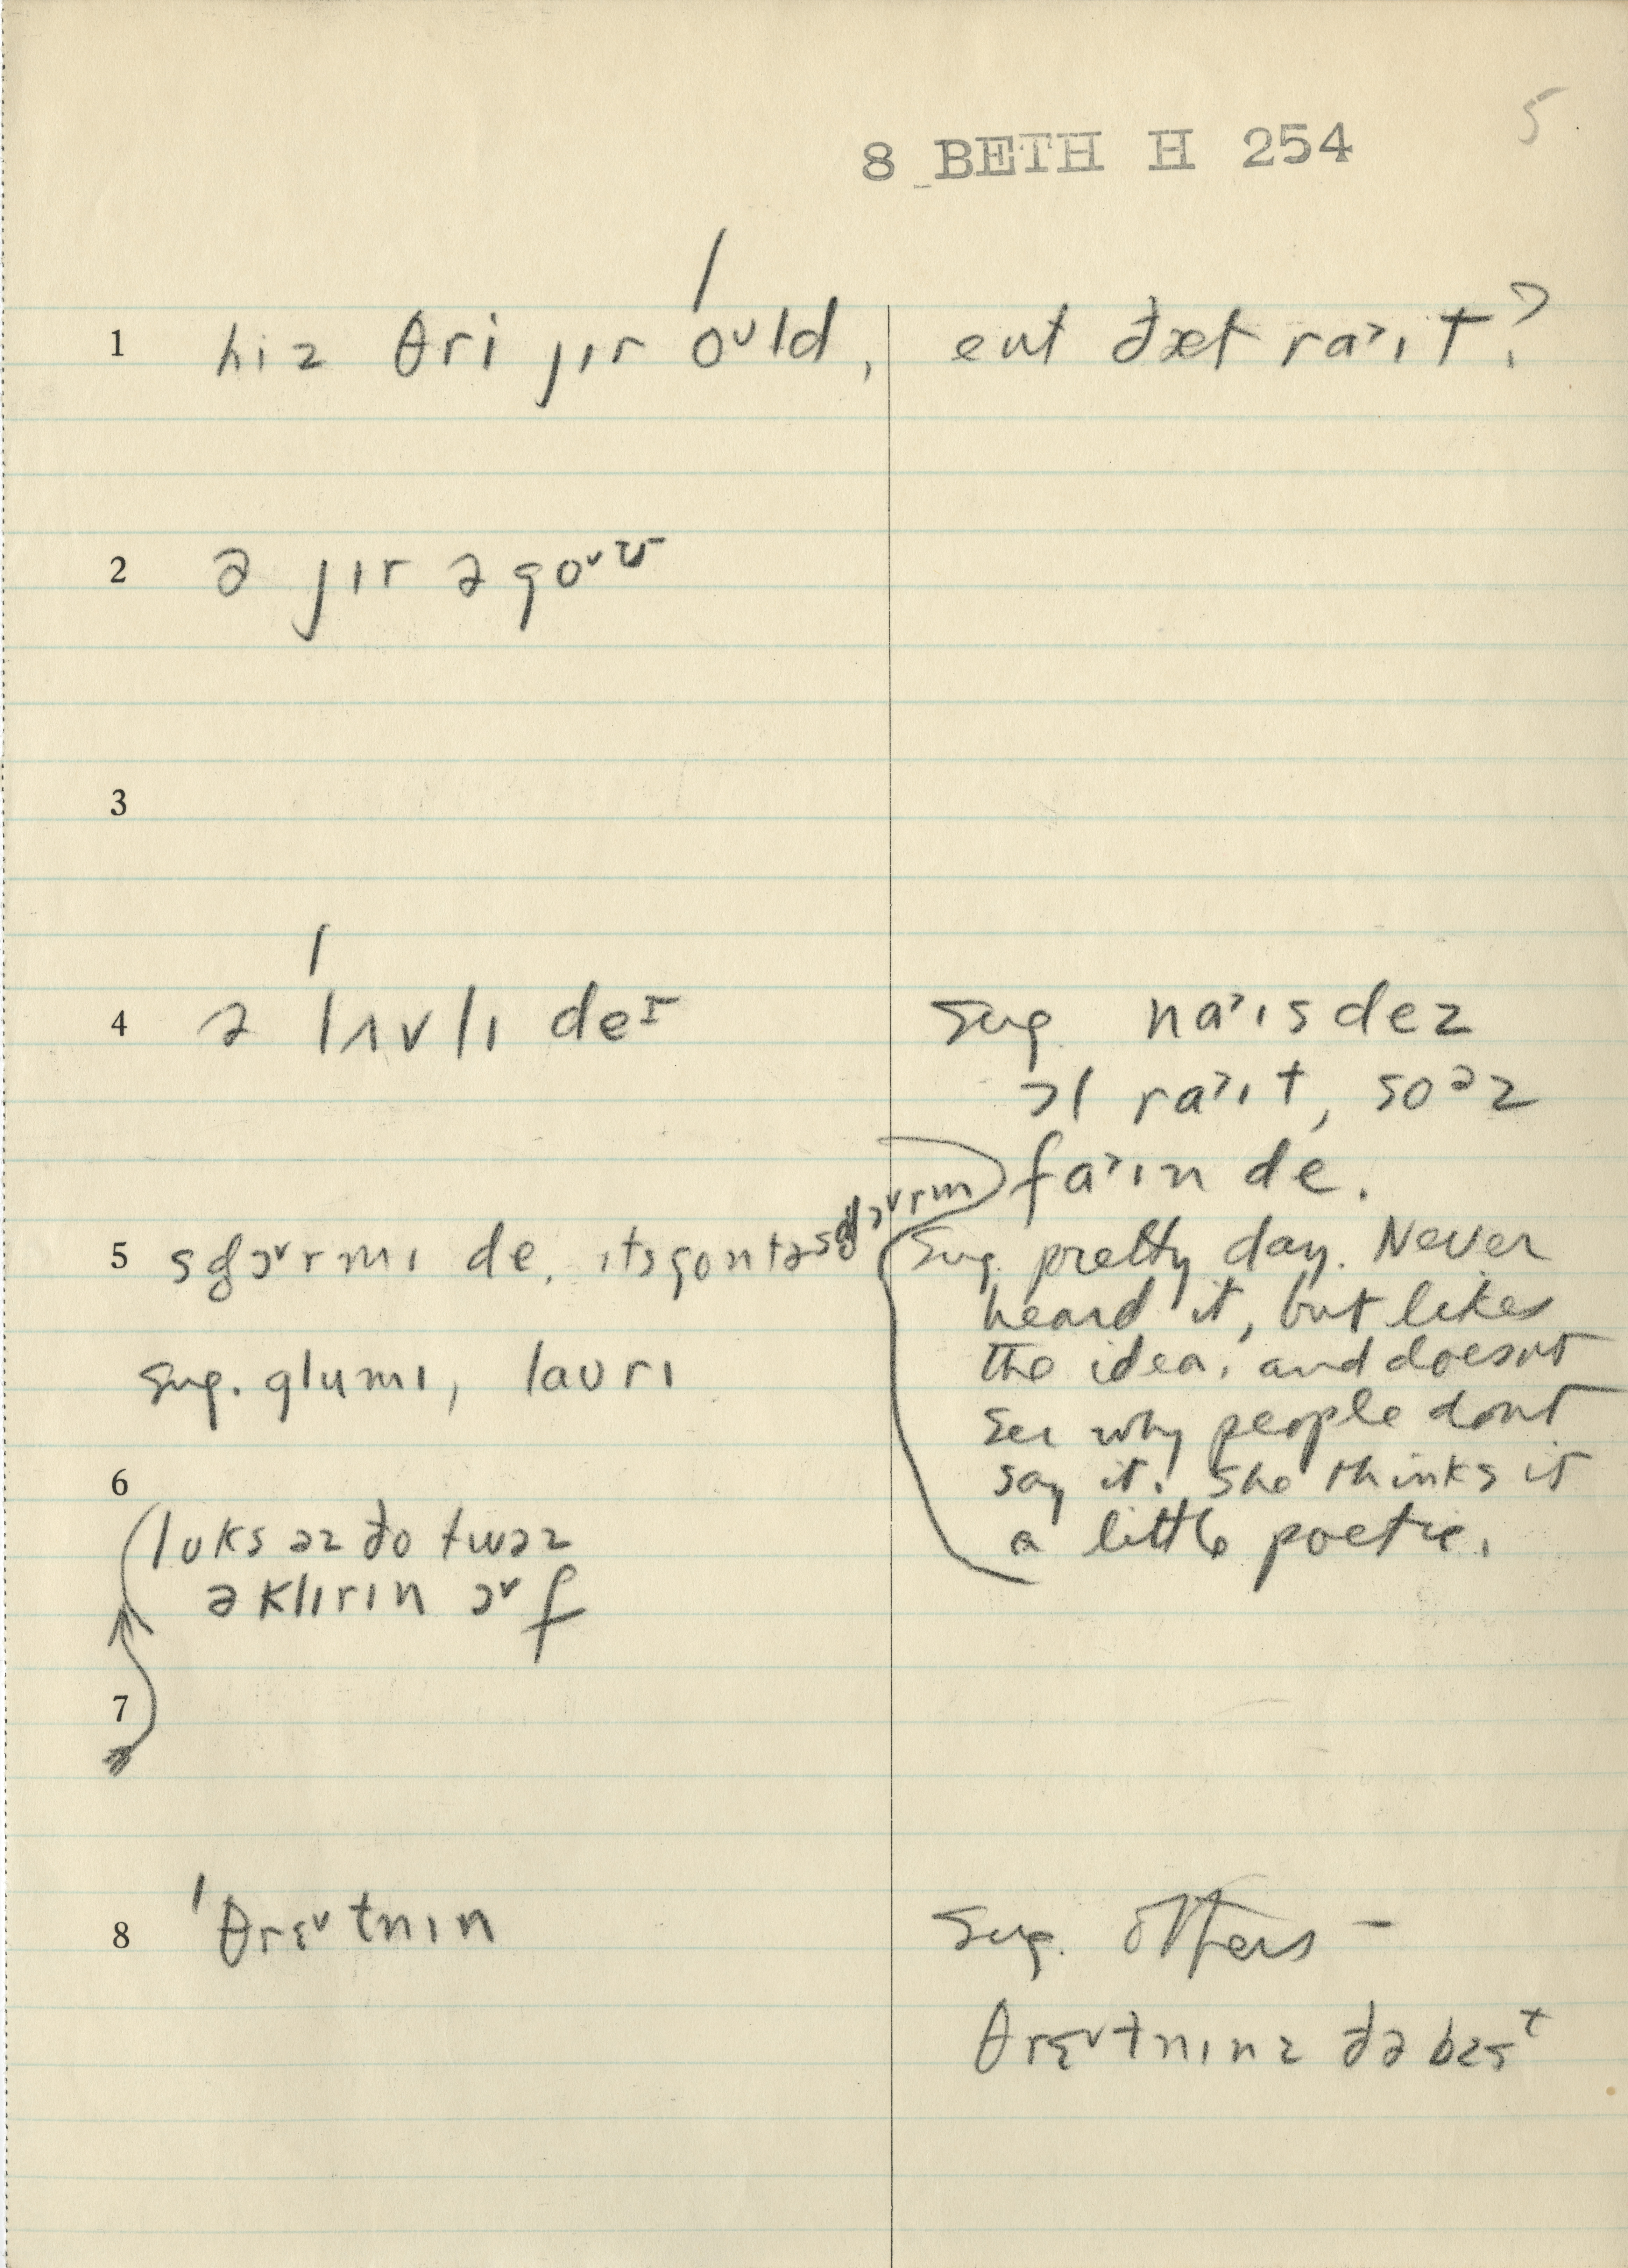 5
8 BETH H 254
1 hiz θri jɪr oʊld, eɪnt ðæt raˀɪt?
2 ə jɪr əgoˇʊ
3
4 ə lʌvlɪ deɪ
sug. naˀɪs dez
ɔl raˀɪt, soəz
faˀɪn de.
5 de. ɪts gontə
sug. pretty day. Never
heard it, but likes
the idea, and doesnt
sug. glumɪ, laʊrɪ
see why people dont
say it. She thinks it
a little poetic.
6
lʊks əz ðo twəz
ə klɪrɪn ɔˇf
7
8 ˈθrɛˇtnɪn
sug. others –
θrɛˇtnɪnz ðə best